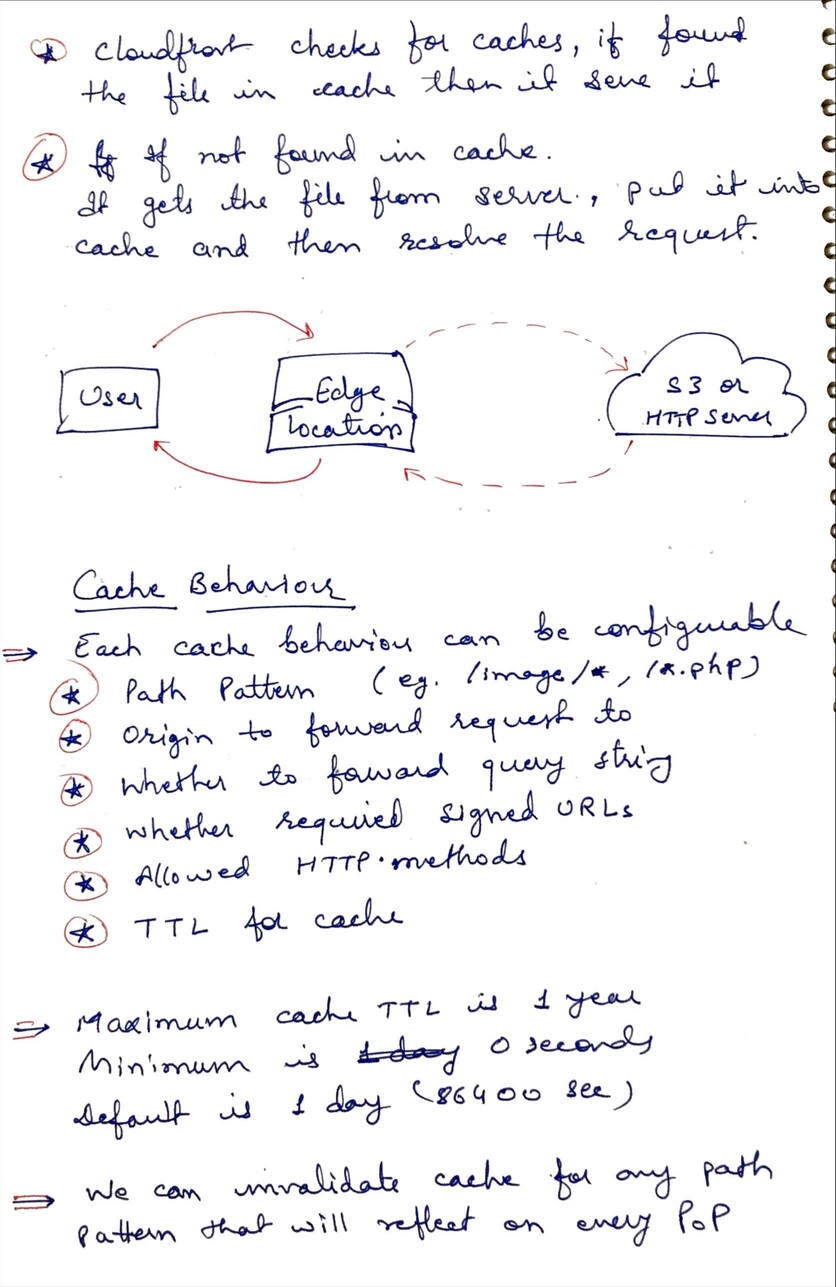 * Cloudfront checks for caches, if found
the file in cache then it serve it
* If not found in cache.
It gets the file from server, put it into
cache and then resolve the request.
User
Edge
Location
S3 or
HTTP Server
Cache Behaviour
⇒ Each cache behaviour can be configurable
* Path Pattern (eg. /image/*, /*.php)
* Origin to forward request to
* Whether to forward query string
* Whether required signed URLs
* Allowed HTTP methods
* TTL for cache
⇒ Maximum cache TTL is 1 year
Minimum is 1 day 0 seconds
Default is 1 day (86400 sec)
⇒ We can invalidate cache for any path
pattern that will reflect on every PoP